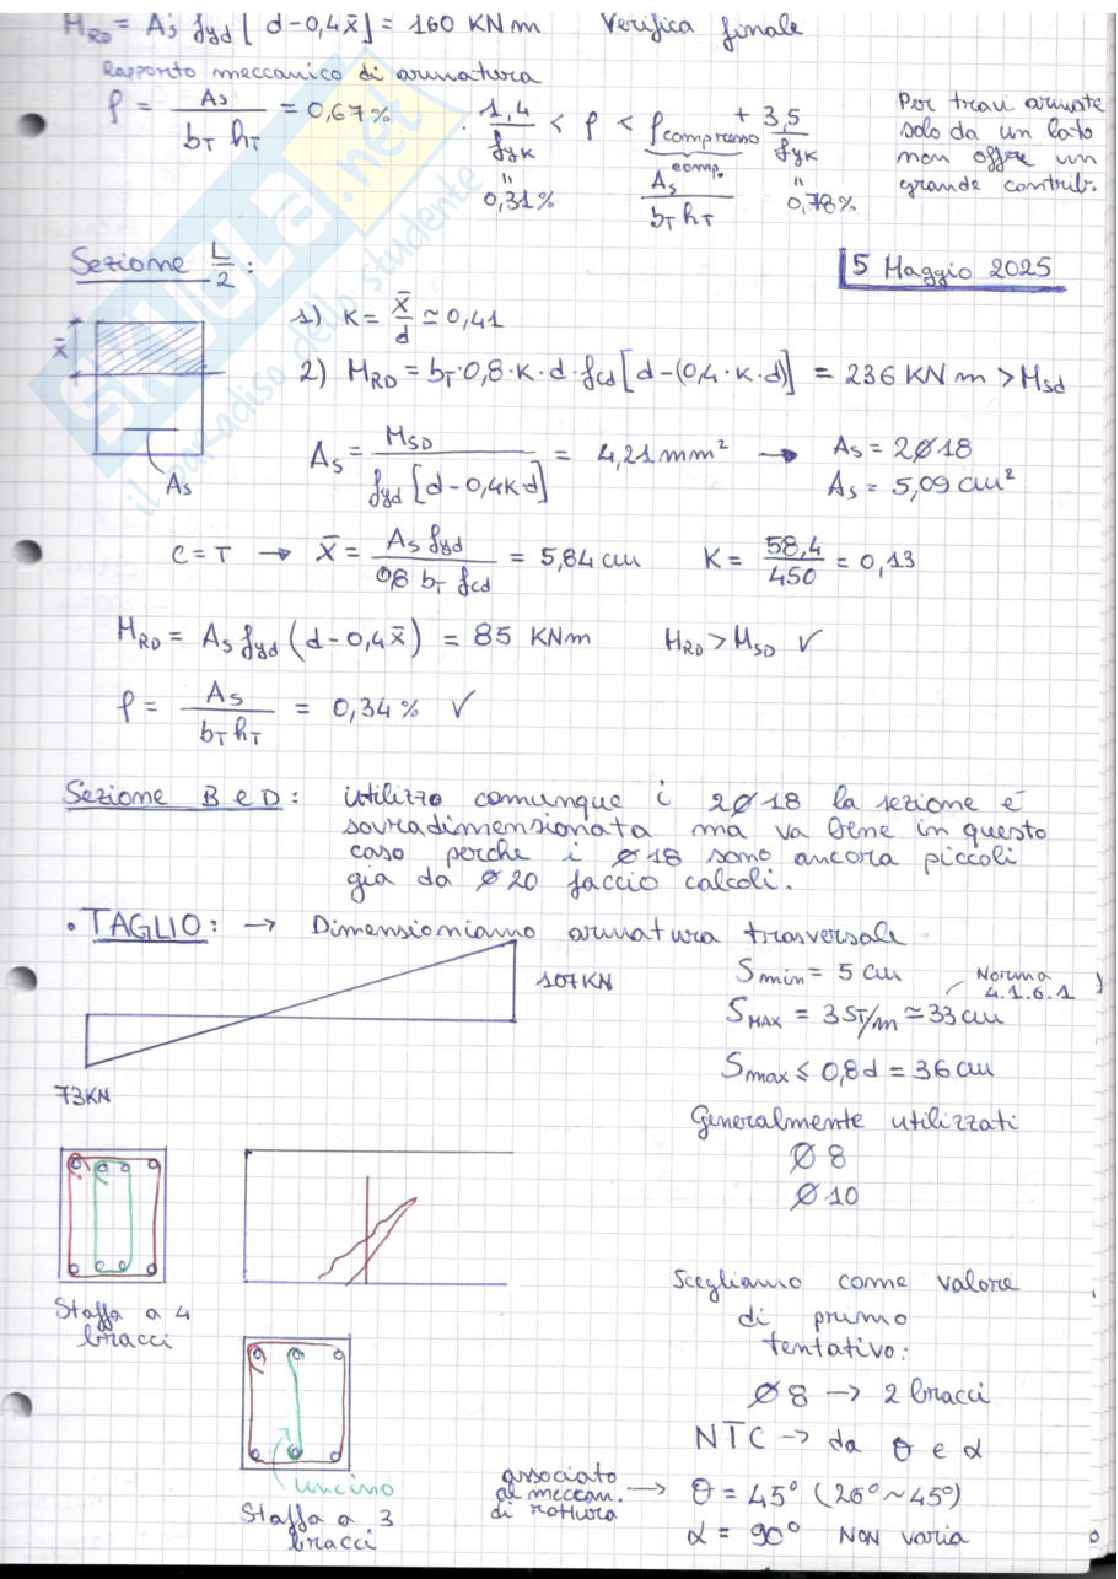 M_RD = As fyd [d-0,4x̄] = 160 KNm Verifica finale
Rapporto meccanico di armatura
ρ = As / (b_T h_T) = 0,67% · 1,4/fyk < ρ < ρcompresso + 3,5/fyk
comp.
" "
0,31% As / (b_T h_T) 0,78%
Per travi armate
solo da un lato
non offre un
grande contrib.
Sezione L/2 :
5 Maggio 2025
x̄
As
1) K = x̄/d ≃ 0,41
2) M_RD = b_T·0,8·K·d·fcd [d-(0,4·K·d)] = 236 KNm > Msd
As = M_SD / (fyd [d-0,4Kd]) = 4,21 mm² → As = 2Ø18
As = 5,09 cm²
C = T → x̄ = As fyd / (0,8 b_T fcd) = 5,84 cm K = 58,4/450 = 0,13
M_RD = As fyd (d-0,4x̄) = 85 KNm M_RD > M_SD √
ρ = As / (b_T h_T) = 0,34% √
Sezione B e D: utilizzo comunque i 2Ø18 la sezione è
sovradimensionata ma va bene in questo
caso perche i Ø18 sono ancora piccoli
gia da Ø20 faccio calcoli.
• TAGLIO: → Dimensioniamo armatura trasversale
107KN
73KN
Smin = 5 cm
Norma
4.1.6.1
S_MAX = 3 ST/m ≃ 33 cm
Smax ≤ 0,8d = 36 cm
Generalmente utilizzati
Ø 8
Ø 10
Staffa a 4
bracci
uncino
Staffa a 3
bracci
Scegliamo come valore
di primo
tentativo:
Ø 8 → 2 bracci
NTC → da θ e α
associato
al meccan.
di rottura
→ θ = 45° (26° ~ 45°)
α = 90° NON varia
SKUOLA.net
il paradiso dello studente